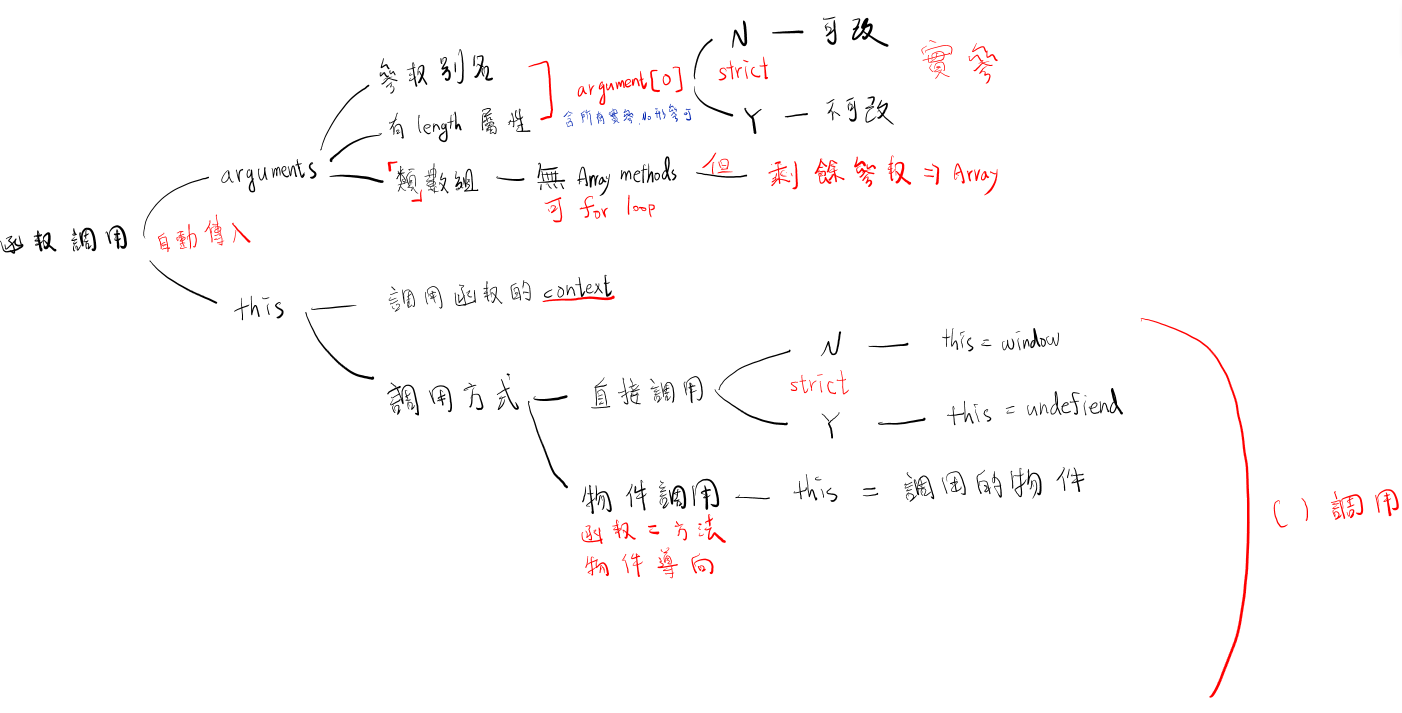 函数調用
自動傳入
arguments
參数別名
有 length 屬性
argument[0]
含所有實參, No 形參可
N — 可改
strict
Y — 不可改
實參
「類數組」 — 無 Array methods
可 for loop
但
剩餘參数 ⇒ Array
this
調用函数的 context
調用方式
直接調用
N — this = window
strict
Y — this = undefiend
物件調用 — this = 調用的物件
函数 = 方法
物件導向
( ) 調用